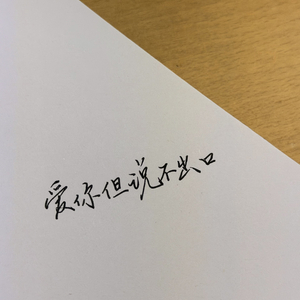 爱你但说不出口